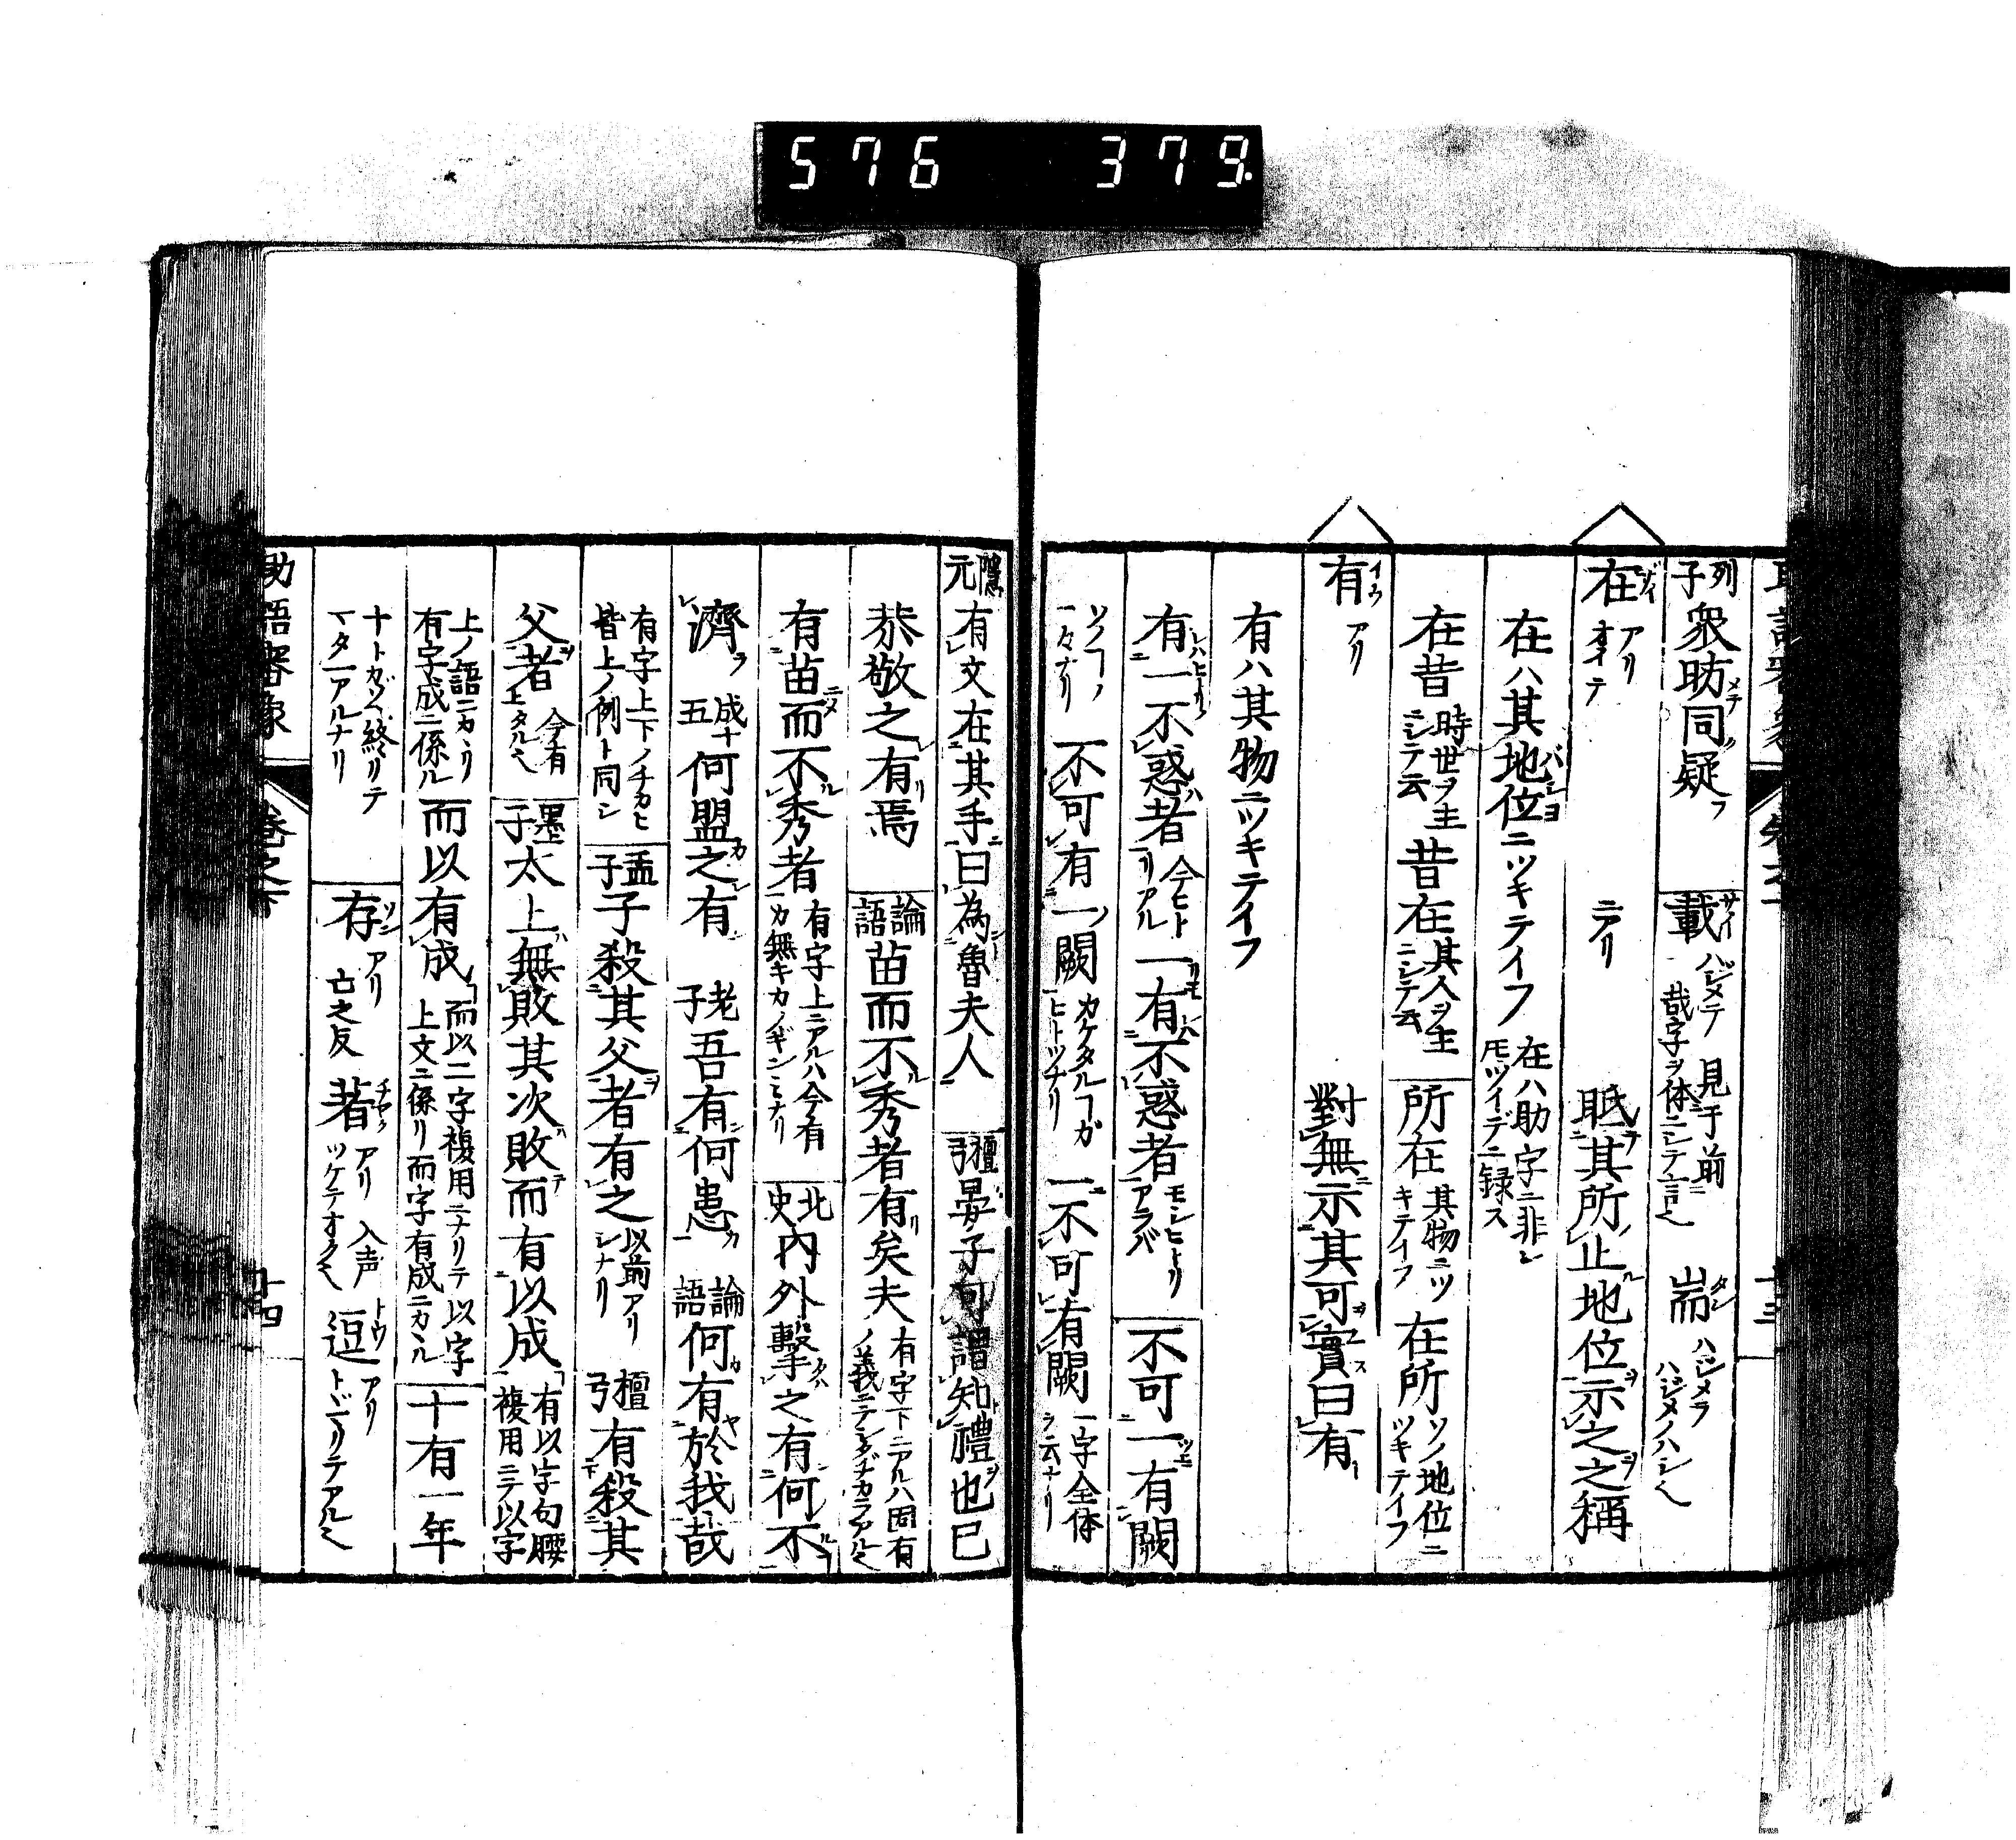 576 379.
列子衆昉同疑 載 ハジメテ 見于前 哉字ヲ体ニシテ言 耑 ハジメラ ハジメノハシ
在 アリ オイテ ニアリ 眡其所止地位示之之稱
在ハ其地位ニツキテイフ 在ハ助字ニ非レ𪜈ツイデニ録ス
在昔 時世ヲ主ニシテ云 昔在 其人ヲ主ニシテ云 所在 其物ニツキテイフ 在所 ソノ地位ニツキテイフ
有 アリ 對無示其可實曰有
有ハ其物ニツキテイフ
有一不惑者 今ヒトリアル 一有不惑者 モシヒトリアラバ 不可一有闕
一々ナリ 不可有一闕 カケタルヿガヒトツナリ 一不可有闕 一字全体ラ云ナリ
隱元有文在其手曰為魯夫人 檀弓晏子可謂知禮也已
恭敬之有焉 論語苗而不秀者有矣夫 有字下ニアルハ固有ノ義ニテ
有苗而不秀者 有字上ニアルハ今有カ無キカノギンミナリ 北史内外擊之有何不
濟 成十五何盟之有 老子吾有何患 論語何有於我哉
有字上下ノチカヒ皆上ノ例ト同シ 孟子子殺其父者有之 以前アリシナリ 檀弓有殺其
父者 今有 墨子太上無敗其次敗而有以成 有以字句腰複用ニテ以字
上ノ語ニカヽリ有字成ニ係ル 而以有成 而以二字複用ニナリテ以字上文ニ係リ而字有成ニカヽル 十有一年
十トカゾヘ終リテマタ一アルナリ 存 アリ 亡之反 著 アリ 入声 ツケテオク 逗 アリ トドマリテアル
助語審象 卷之下 十四